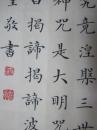 竟涅槃三世
神咒是大明咒
曰揭諦揭諦波
敬書